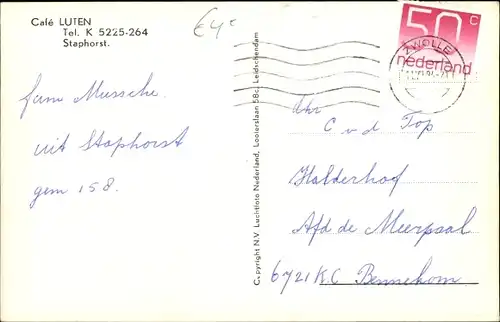 Café LUTEN
Tel. K 5225-264
Staphorst.
€4
50 c
nederland
ZWOLLE
fam Mussche
uit Staphorst
gem 158.
Copyright N.V. Luchtfoto Nederland, Looierslaan 58c, Leidschendam
Ahr
C v d Top
Halderhof
Afd de Meerpaal
6721 K.C Bennekom